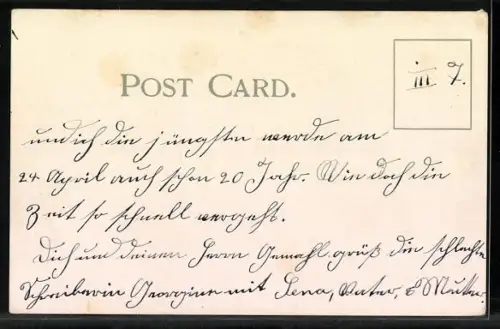 III 7.
POST CARD.
und ich die jüngste werde am
24 April auch schon 20 Jahr. Wie doch die
Zeit so schnell vergeht.
Dich und deinen Herrn Gemahl grüß die schlechte
Schreiberin Georgine mit Lena, Vater, & Mutter.